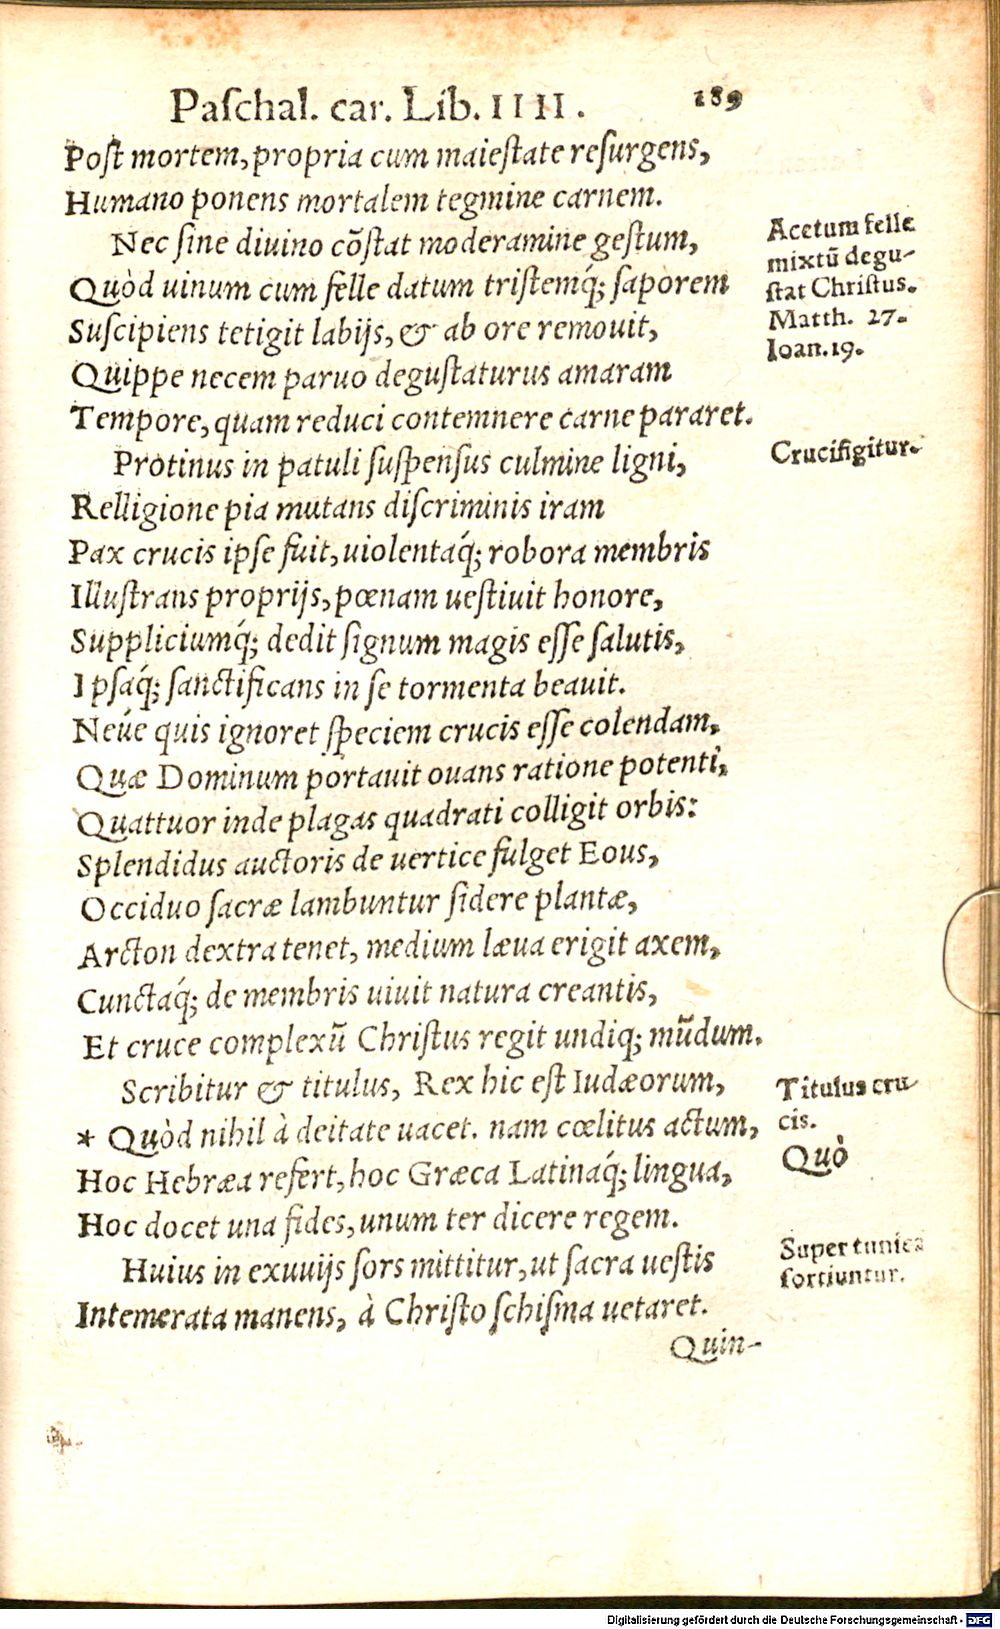 Paſchal. car. Lib. IIII. 189
Poſt mortem, propria cum maieſtate reſurgens,
Humano ponens mortalem tegmine carnem.
Nec ſine diuino cōſtat moderamine geſtum,
Quòd uinum cum felle datum triſtemq́; ſaporem
Suſcipiens tetigit labijs, & ab ore remouit,
Quippe necem paruo deguſtaturus amaram
Tempore, quam reduci contemnere carne pararet.
Acetum felle
mixtū degu-
ſtat Chriſtus.
Matth. 27.
Ioan. 19.
Protinus in patuli ſuſpenſus culmine ligni,
Crucifigitur.
Relligione pia mutans diſcriminis iram
Pax crucis ipſe fuit, uiolentaq́; robora membris
Illuſtrans proprijs, pœnam ueſtiuit honore,
Suppliciumq́; dedit ſignum magis eſſe ſalutis,
Ipſaq́; ſanctificans in ſe tormenta beauit.
Neúe quis ignoret ſpeciem crucis eſſe colendam,
Quæ Dominum portauit ouans ratione potenti,
Quattuor inde plagas quadrati colligit orbis:
Splendidus auctoris de uertice fulget Eous,
Occiduo ſacræ lambuntur ſidere plantæ,
Arcton dextra tenet, medium læua erigit axem,
Cunctaq́; de membris uiuit natura creantis,
Et cruce complexū Chriſtus regit undiq; mūdum.
Scribitur & titulus, Rex hic eſt Iudæorum,
* Quòd nihil à deitate uacet. nam cœlitus actum,
Hoc Hebræa refert, hoc Græca Latinaq́; lingua,
Hoc docet una fides, unum ter dicere regem.
Titulus cru-
cis.
Quò
Huius in exuuijs ſors mittitur, ut ſacra ueſtis
Intemerata manens, à Chriſto ſchiſma uetaret.
Super tunica
ſortiuntur.
Quin-
Digitalisierung gefördert durch die Deutsche Forschungsgemeinschaft - DFG